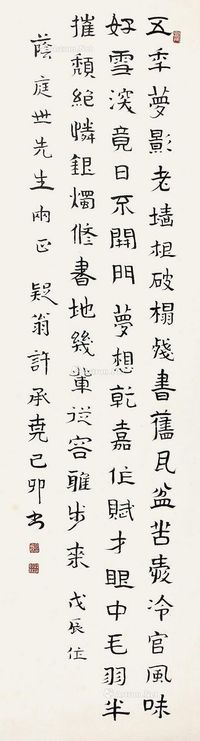 五年夢影老墻根破榻殘書舊瓦盆苦愛冷官風味
好雪深竟日不開門夢想乾嘉作賦才眼中毛羽半
摧頹絕憐銀燭修書地幾輩從容雅步來 戊辰作
蔭庭世先生雨正 疑翁許承堯己卯書